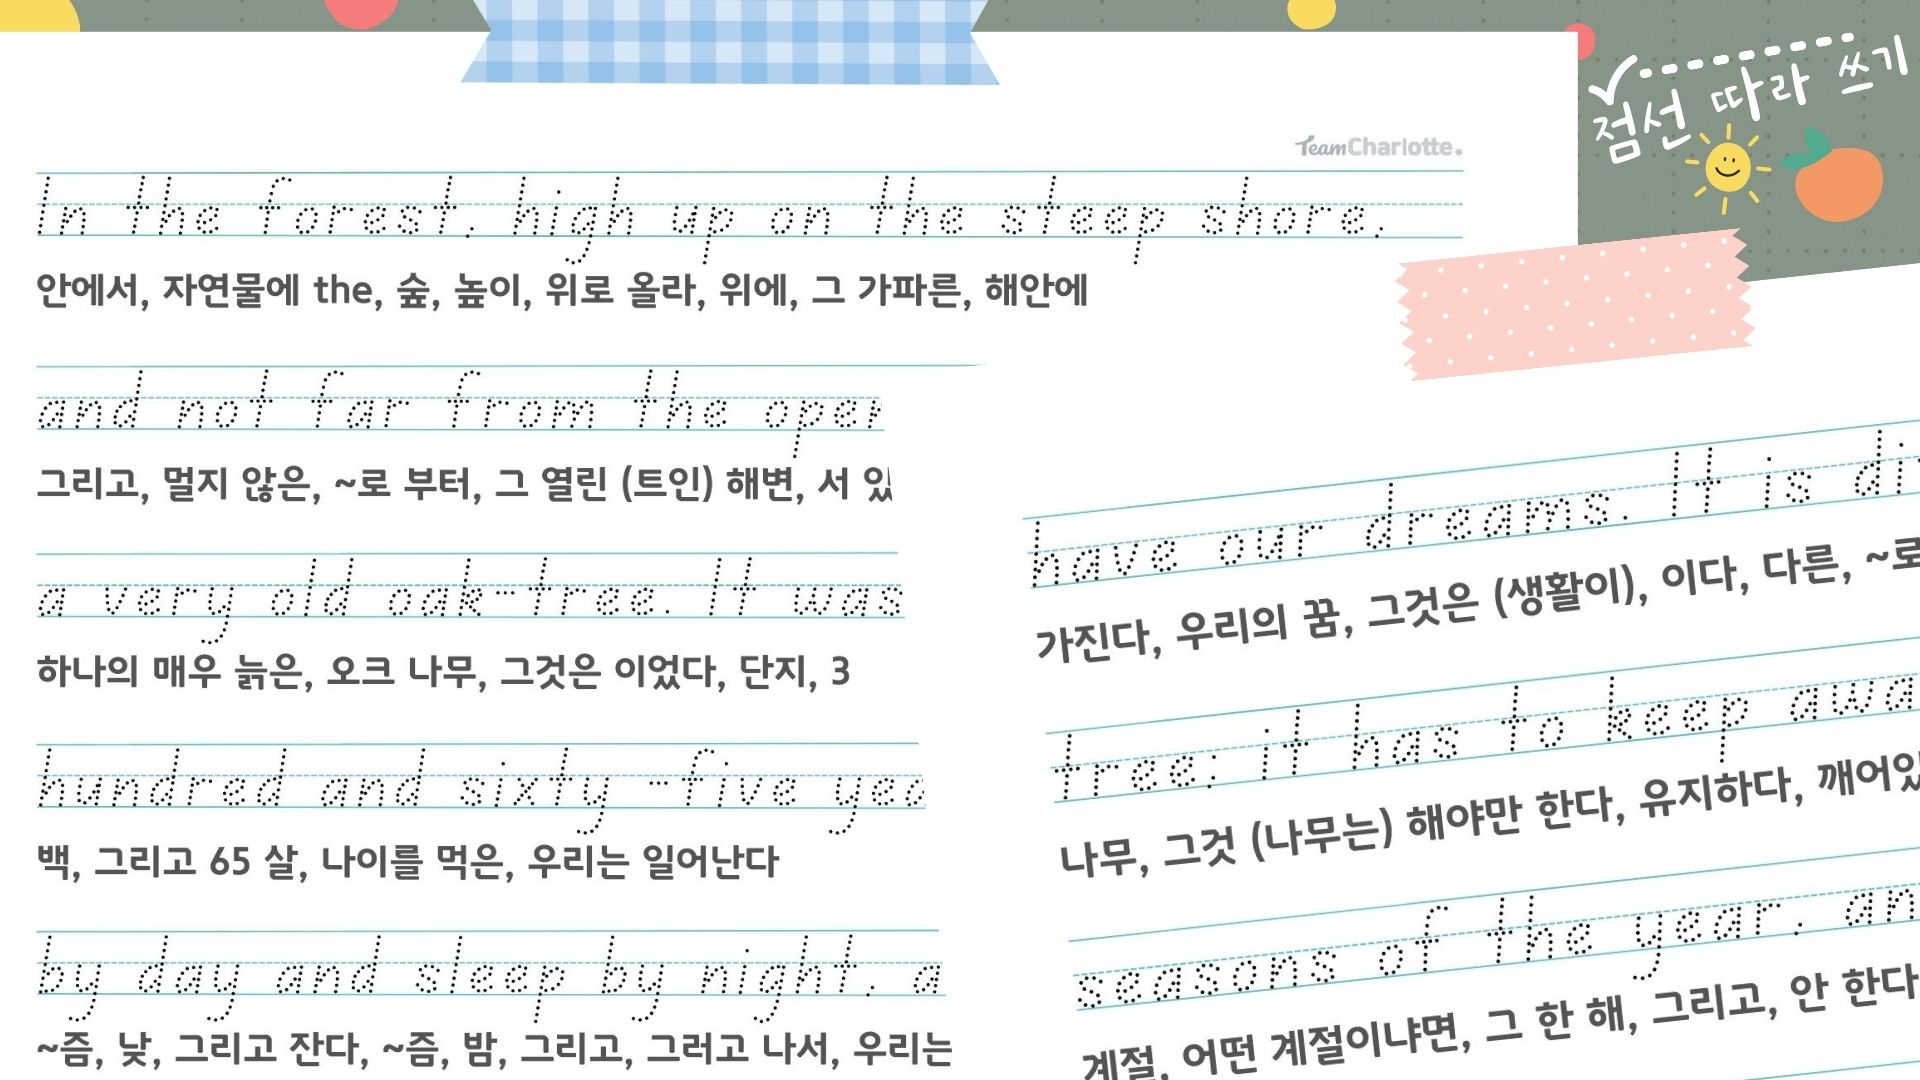 점선 따라 쓰기
TeamCharlotte.
In the forest, high up on the steep shore,
안에서, 자연물에 the, 숲, 높이, 위로 올라, 위에, 그 가파른, 해안에
and not far from the
그리고, 멀지 않은, ~로 부터, 그 열린 (트인) 해변, 서
a very old oak-tree. It was
하나의 매우 늙은, 오크 나무, 그것은 이었다, 단지, 3
hundred and sixty-five
백, 그리고 65 살, 나이를 먹은, 우리는 일어난다
by day and sleep by night, a
~즘, 낮, 그리고 잔다, ~즘, 밤, 그리고, 그러고 나서, 우리는
have our dreams. It is
가진다, 우리의 꿈, 그것은 (생활이), 이다, 다른, ~로
tree; it has to keep
나무, 그것 (나무는) 해야만 한다, 유지하다,
seasons of the year, an
계절, 어떤 계절이냐면, 그 한 해, 그리고, 안 한다